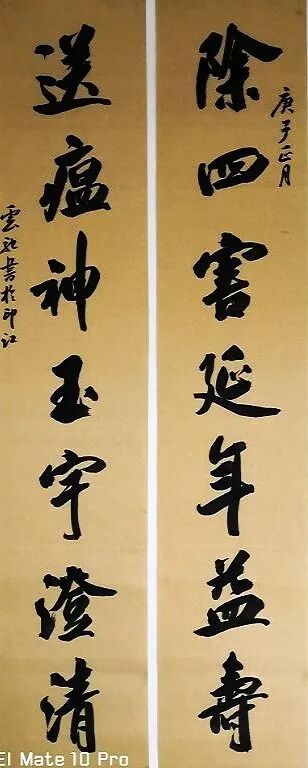 除四害延年益寿
庚子正月
送瘟神玉宇澄清
雲龍書於印江
EI Mate 10 Pro